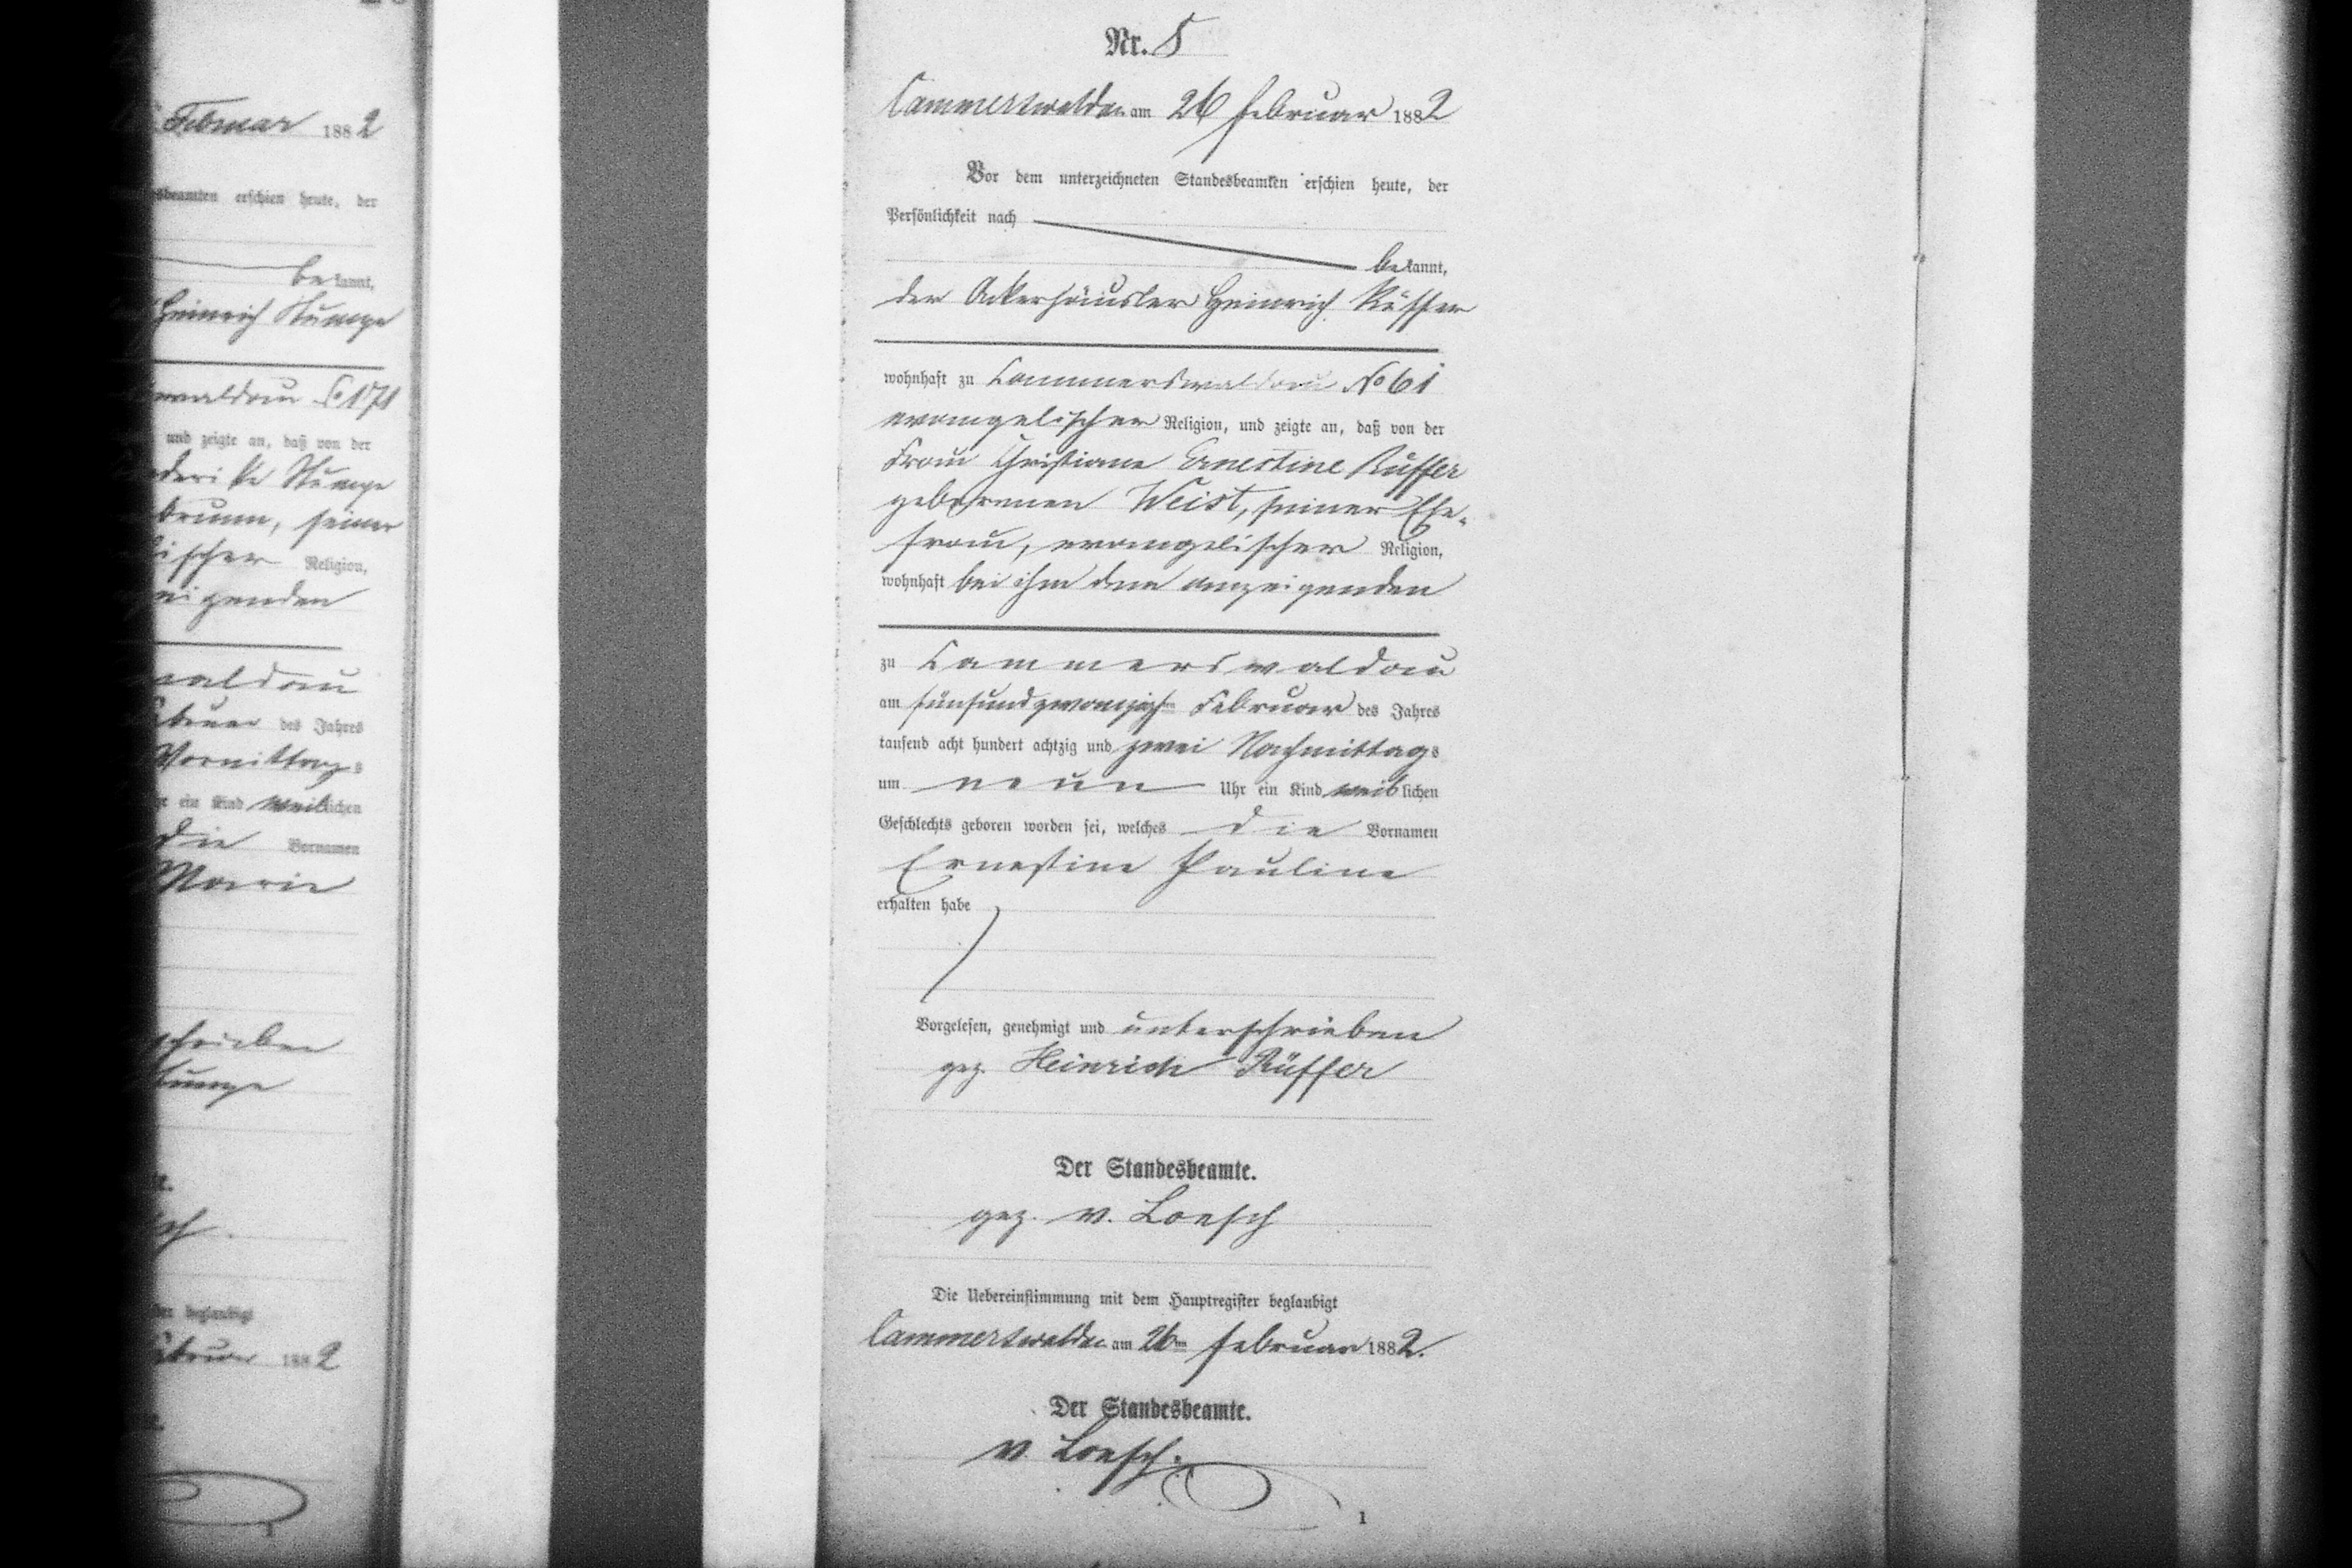 Februar 1882
sbeamten erschien heute, der
bekannt,
Heinrich Stumpe
waldau No 171
und zeigte an, daß von der
Stumpe
brunn, seiner
ischer Religion,
eigenden
waldau
des Jahres
Vormittags
ein Kind weiblichen
die Vornamen
Marie
schrieben
Stumpe
beglaubigt
1882
Nr. 5
Cammerswaldau am 26 Februar 1882
Vor dem unterzeichneten Standesbeamten erschien heute, der
Persönlichkeit nach
bekannt,
der Ackerhäusler Heinrich Rüffer
wohnhaft zu Cammerswaldau No 61
evangelischer Religion, und zeigte an, daß von der
Frau Christiane Ernestine Rüffer
geborenen Weist, seiner Ehe-
frau, evangelischer Religion,
wohnhaft bei ihm dem anzeigenden
zu Cammerswaldau
am fünfundzwanzigsten Februar des Jahres
tausend acht hundert achtzig und zwei Nachmittags
um neun Uhr ein Kind weiblichen
Geschlechts geboren worden sei, welches die Vornamen
Ernestine Pauline
erhalten habe
Vorgelesen, genehmigt und unterschrieben
gez. Heinrich Rüffer
Der Standesbeamte.
gez. v. Loesch
Die Uebereinstimmung mit dem Hauptregister beglaubigt
Cammerswaldau am 26ten Februar 1882.
Der Standesbeamte.
v. Loesch.
1